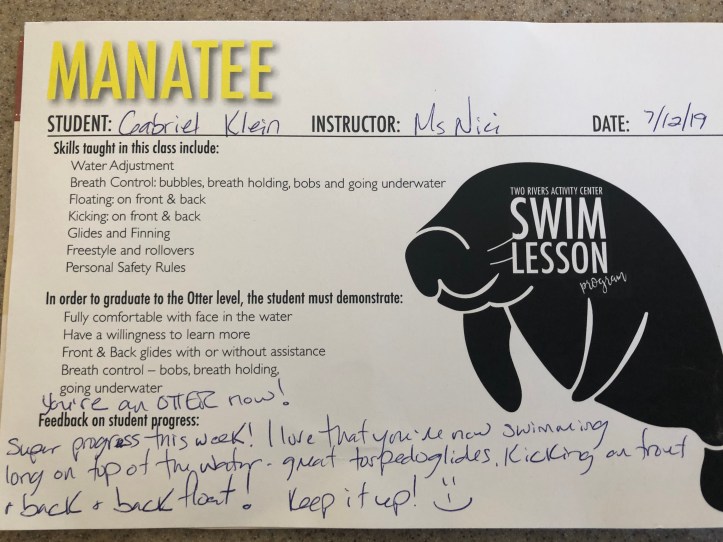 MANATEE
STUDENT: Gabriel Klein INSTRUCTOR: Ms Nici DATE: 7/12/19
Skills taught in this class include:
Water Adjustment
Breath Control: bubbles, breath holding, bobs and going underwater
Floating: on front & back
Kicking: on front & back
Glides and Finning
Freestyle and rollovers
Personal Safety Rules
TWO RIVERS ACTIVITY CENTER
SWIM
LESSON
program
In order to graduate to the Otter level, the student must demonstrate:
Fully comfortable with face in the water
Have a willingness to learn more
Front & Back glides with or without assistance
Breath control – bobs, breath holding,
going underwater
You're an OTTER now!
Feedback on student progress:
Super progress this week! I love that you're now swimming
long on top of the water - great torpedo glides, Kicking on front
+ back + back float! Keep it up!